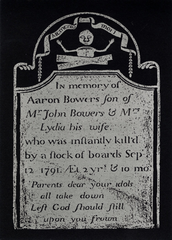 In memory of
Aaron Bowers son of
Mr John Bowers & Mrs
Lydia his wife.
who was instantly kill'd
by a stock of boards Sep
12 1791 Æt 2 yrs & 10 mo
Parents dear your idols
all take down
Lest God should still
upon you frown